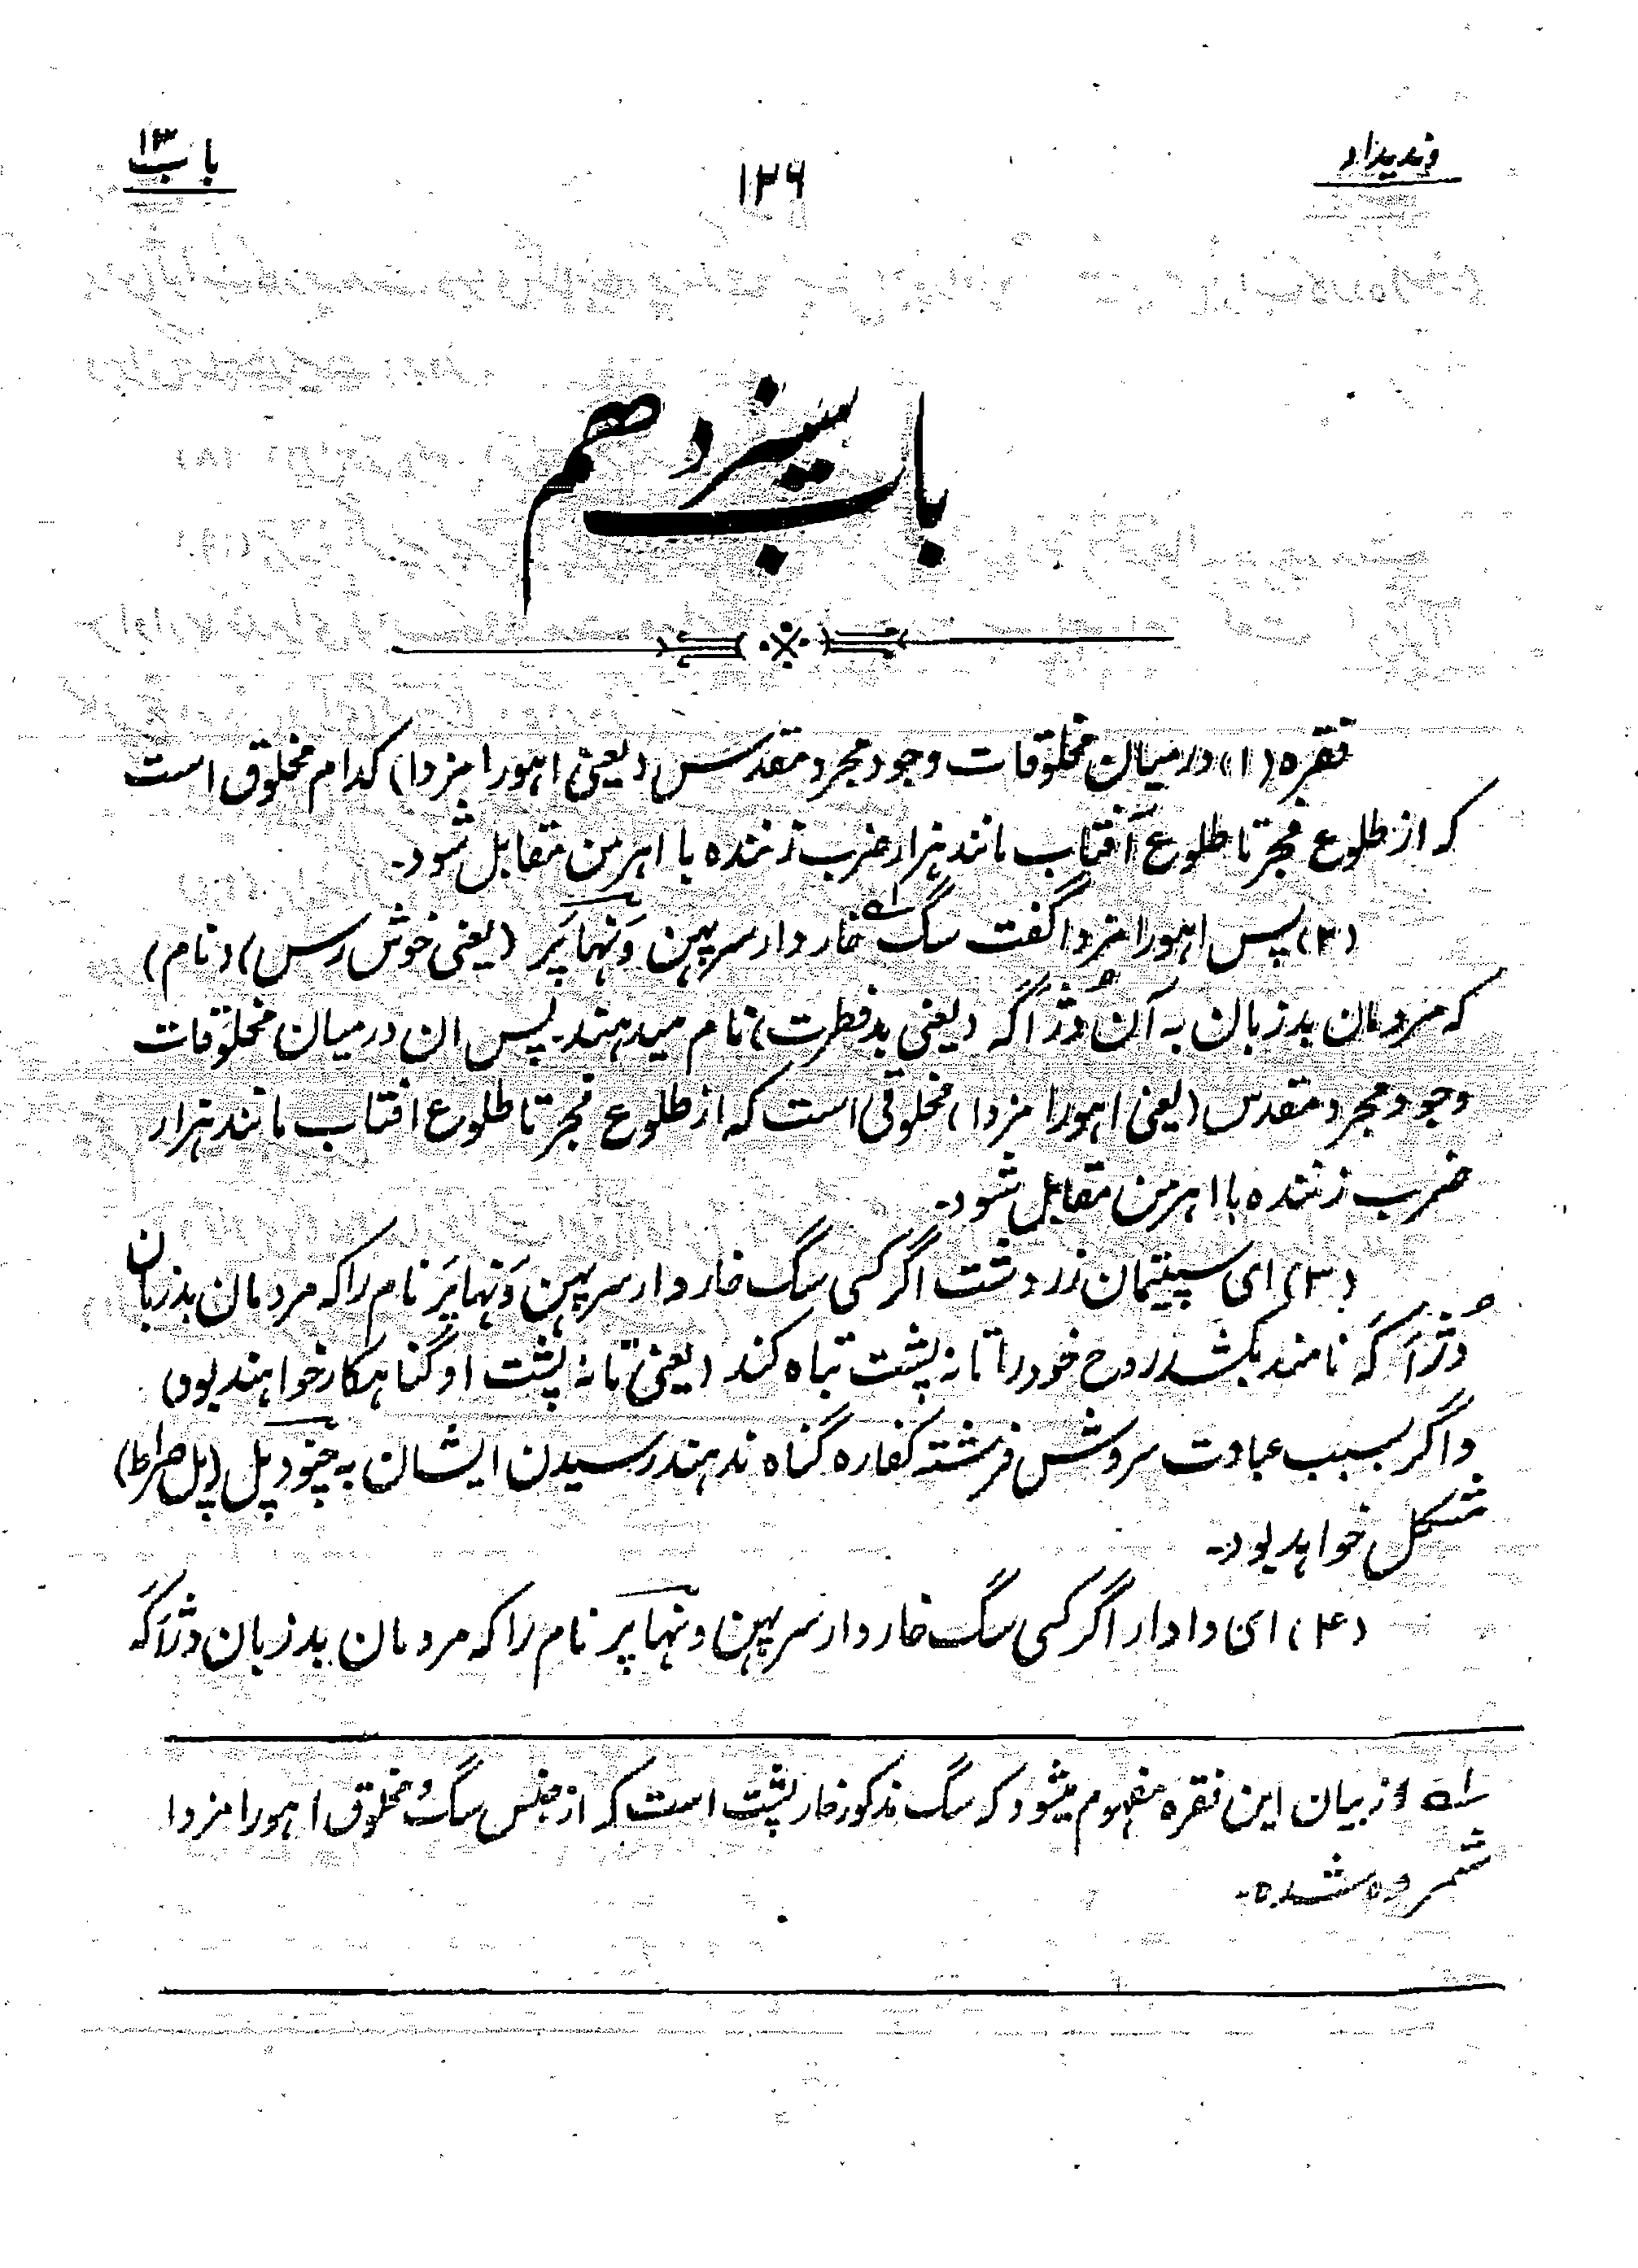 وندیداد
۱۲۶
باب ۱۳
باب سیزدهم
فقره (۱) درمیان مخلوقات وجود مجرد مقدس (یعنی اهورا مزدا) کدام مخلوق است
که از طلوع فجر تا طلوع آفتاب مانند هزار ضرب زننده با اهرمن مقابل شود۔
(۲) پس اهورا مزدا گفت سگ ۱ه خاردار سرپهن وَنهاپَر (یعنی خوش رس) (نام)
که مردمان بدزبان به آن دُوژَاکَه (یعنی بدفطرت) نام میدهند۔ پس ان درمیان مخلوقات
وجود مجرد مقدس (یعنی اهورا مزدا) مخلوقی است که از طلوع فجر تا طلوع افتاب مانند هزار
ضرب زننده با اهرمن مقابل شود۔
(۳) ای سپیتمان زردشت اگر کسی سگ خاردار سرپهن وَنهاپَر نام را که مردمان بدزبان
دُوژَاکَه نامند بکشد روح خود را تا نه پشت تباه کند (یعنی تا نه پشت او گناهکار خواهند بود)
و اگر بسبب عبادت سروش فرشته کفاره گناه ندهند رسیدن ایشان به چنود پل (پل صراط)
مشکل خواهد بود۔
(۴) ای دادار اگر کسی سگ خاردار سرپهن ونهاپر نام را که مردمان بدزبان دوژَاکَه
۱ه از بیان این فقره مفهوم میشود که سگ مذکور خارپشت است که از جنس سگ و مخلوق اهورا مزدا
شمرده شده۔